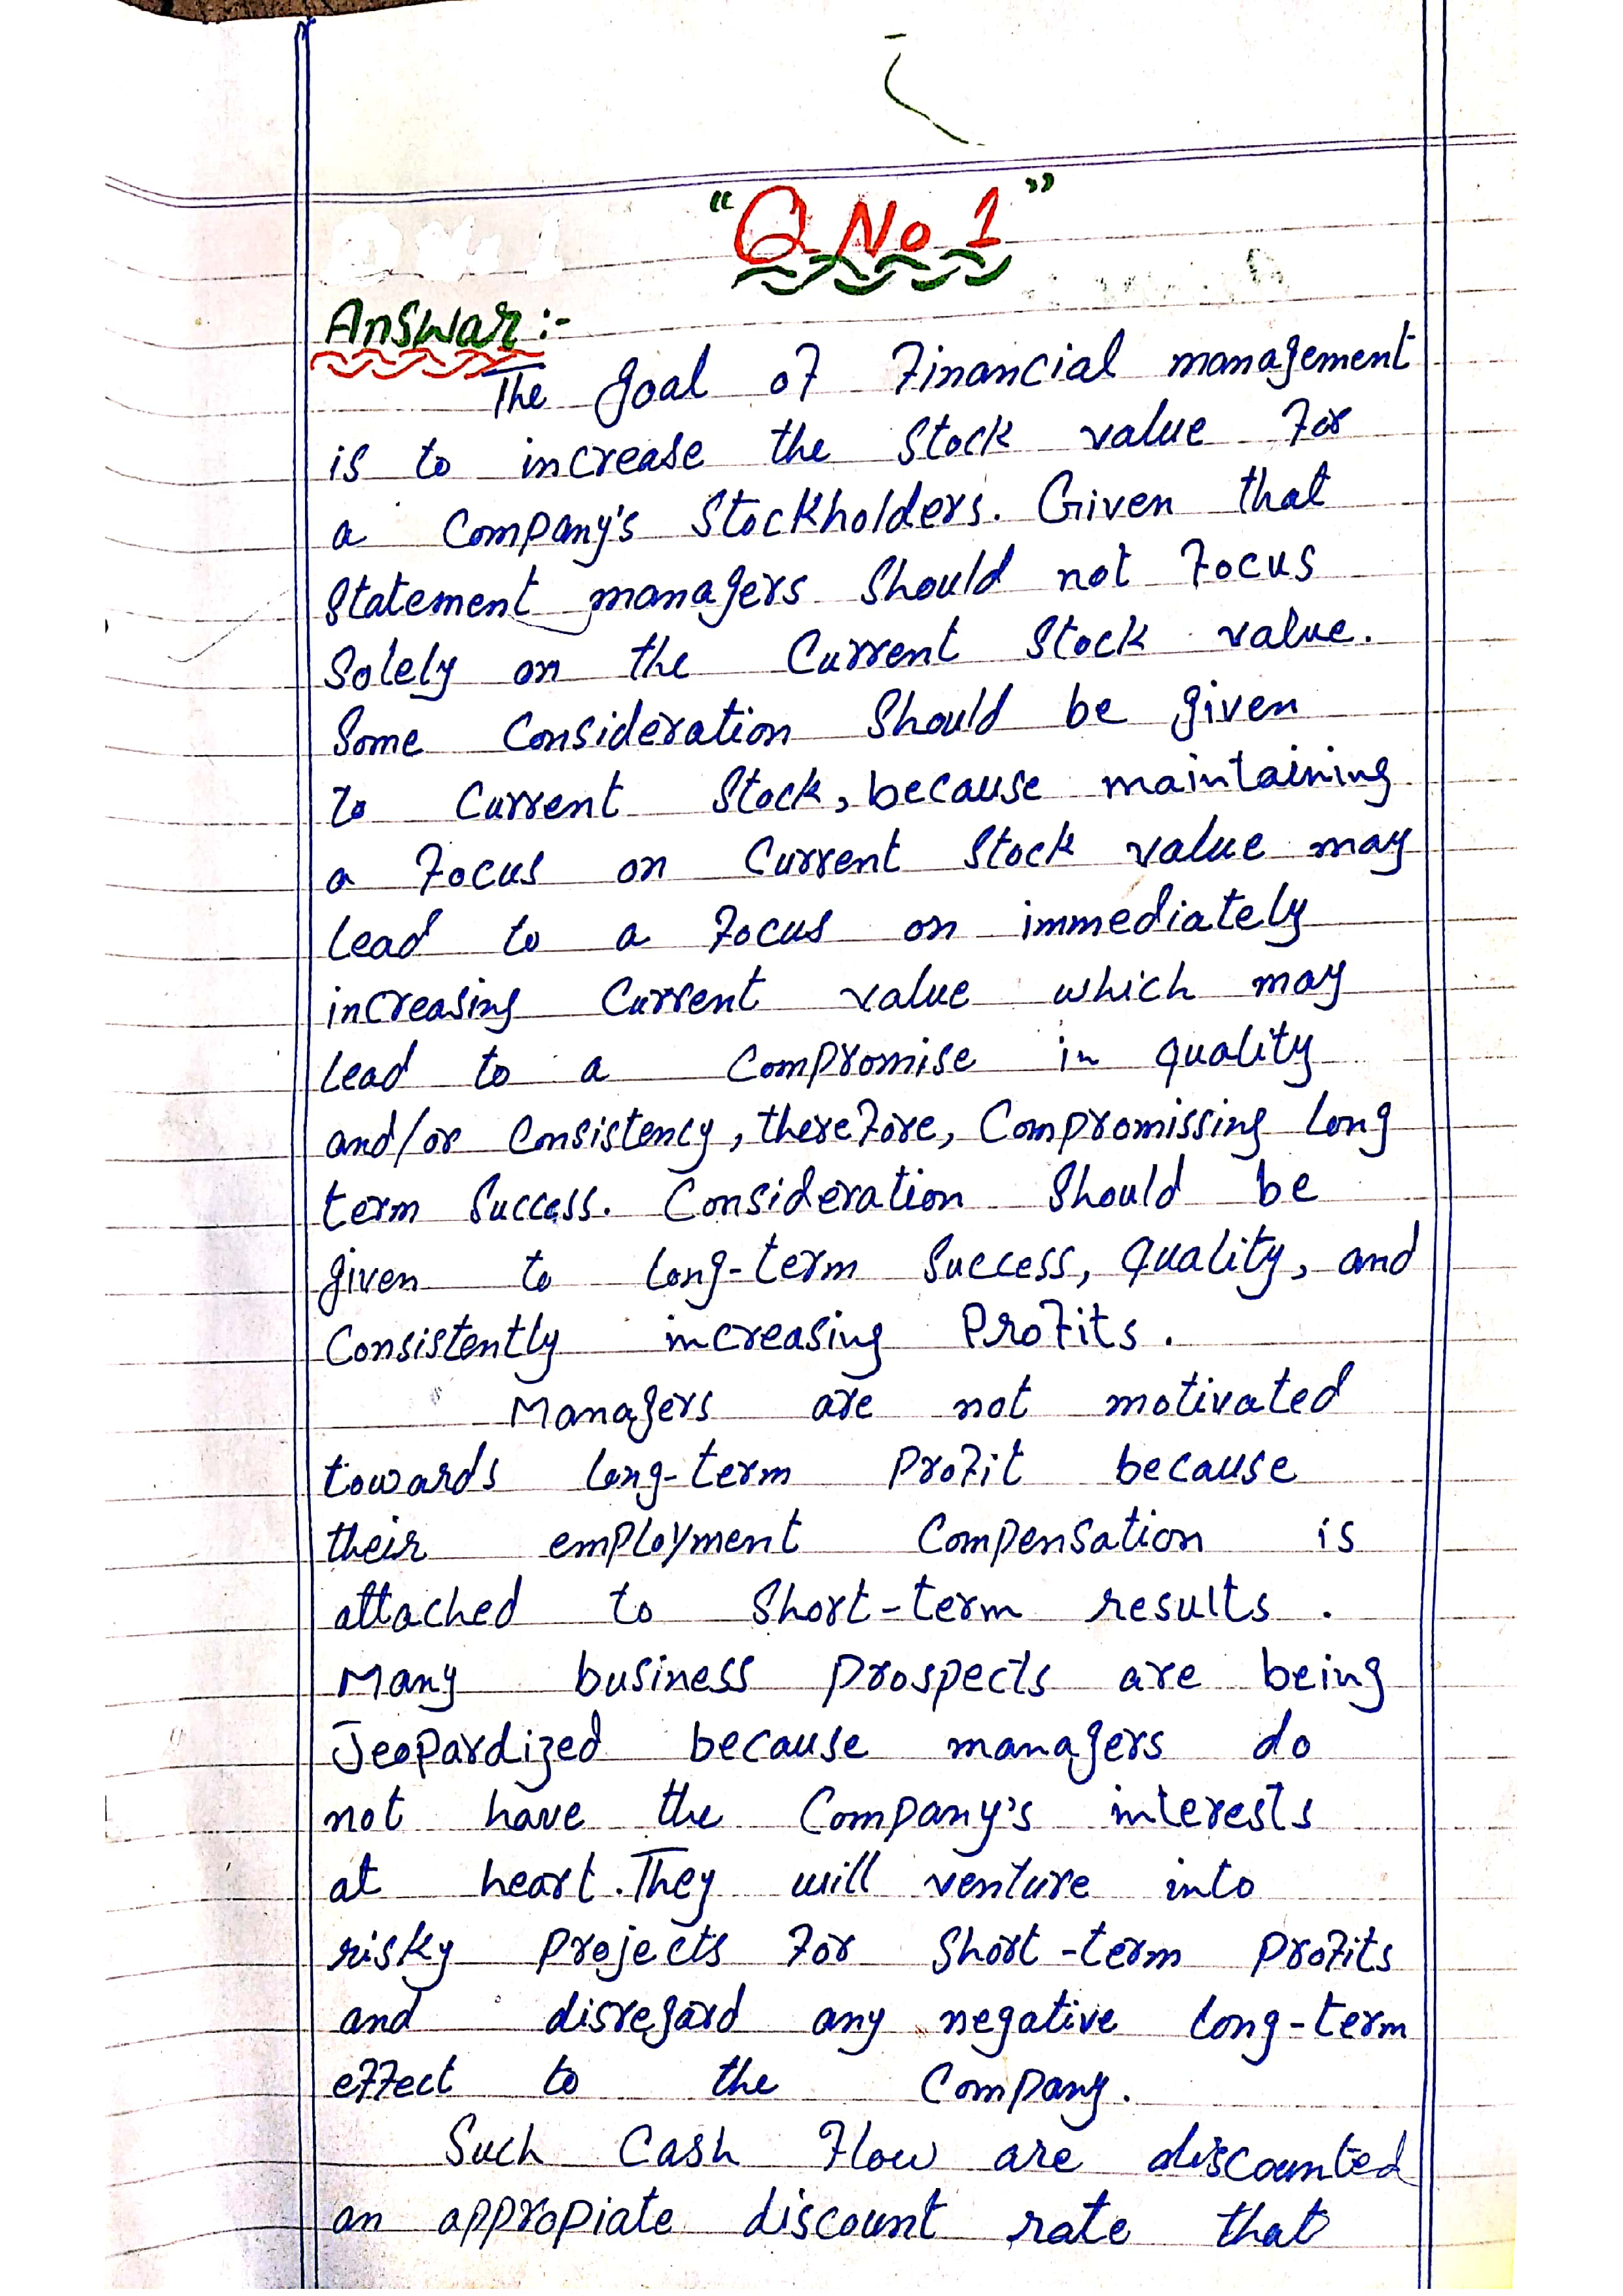 "Q No 1"
Answar:-
The goal of Financial management
is to increase the Stock value For
a Company's Stockholders. Given that
Statement managers Should not Focus
Solely on the Current Stock value.
Some Consideration Should be given
to Current Stock, because maintaining
a Focus on Current Stock value may
lead to a Focus on immediately
increasing Current value which may
lead to a Compromise in quality
and/or Consistency, therefore, Compromissing Long
term Success. Consideration Should be
given to Long-term Success, quality, and
Consistently increasing Profits.
Managers are not motivated
towards long-term Profit because
their employment Compensation is
attached to Short-term results.
Many business Prospects are being
Jeopardized because managers do
not have the Company's interests
at heart. They will venture into
risky Projects For Short-term Profits
and disregard any negative long-term
effect to the Company.
Such Cash Flow are discounted
an appropiate discount rate that